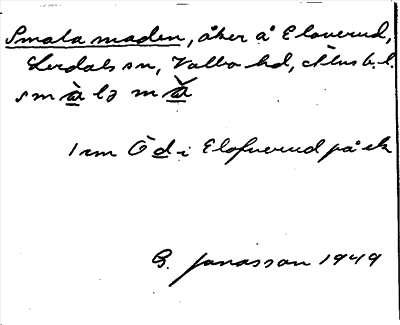 Smala maden, åker å Eloverud,
Lerdals sn, Valbo hd, Älvsb. l.
smàlə mǎ
1 sm Öd i Elofverud på ek
G. Jonasson 1949